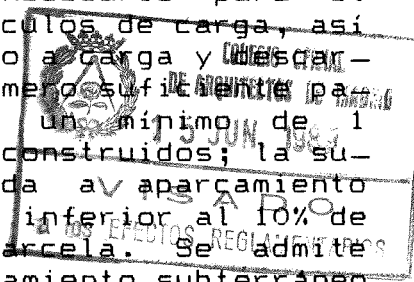 culos de carga, así
o a carga y descar—
mero suficiente pa—
un mínimo de 1
construidos; la su—
da a aparcamiento
inferior al 10% de
arcela. Se admite
amiento subterráneo
COLEGIO OFICIAL
DE ARQUITECTOS DE MADRID
JUN.
VISADO
a los EFECTOS REGLAMENTARIOS